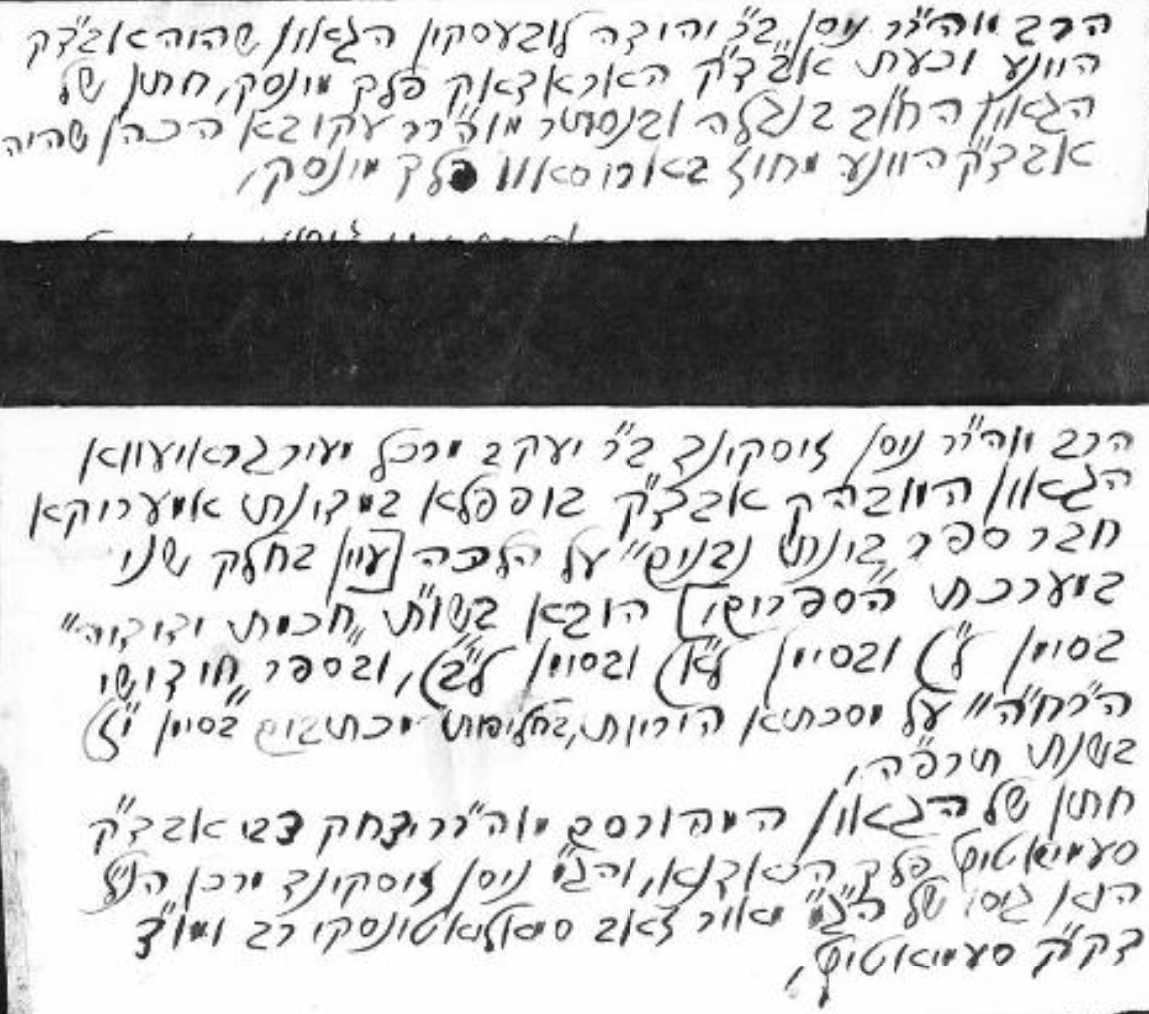 הרב מוה״רר ניסן ב״ר יהודה לובעסקין הגאון שהיה אבד״ק
היוונע וכעת אבד״ק האראדאק פלך מינסק, חתן של
הגאון החו״ב בנגלה ובנסתר מוה״רר עקובא הכהן שהיה
אבד״ק היוונע מחוז באריסאוו פלך מינסק,
הרב מוה״רר ניסן זיסקינד ב״ר יעקב מרכל מעיר גראיעווא
הגאון המובהק אבד״ק בופפלא במדינת אמעריקא
חבר ספר בינת נבונים״ על הלכה [עיין בחלק שני
במערכת הספרים] הובא בשו״ת ״חכמת יהודה״
בסימן ל״) ובסימן ל״א) ובסימן ל״ב), ובספר ״חידושי
הרח״ה״ על מסכתא הוריות, בחליפות מכתבים בסימן י״ז)
בשנת תרפ״ה,
חתן של הגאון המפורסם מוה״רר יצחק צבי אבד״ק
סעמיאטיץ פלך הראדנא, והג״מ ניסן זיסקינד מרכל הנ״ל
הוא גיסו של ה״ג מאור זאב סמאליאטינסקי רב ומו״צ
דק״ק סעמיאטיץ,